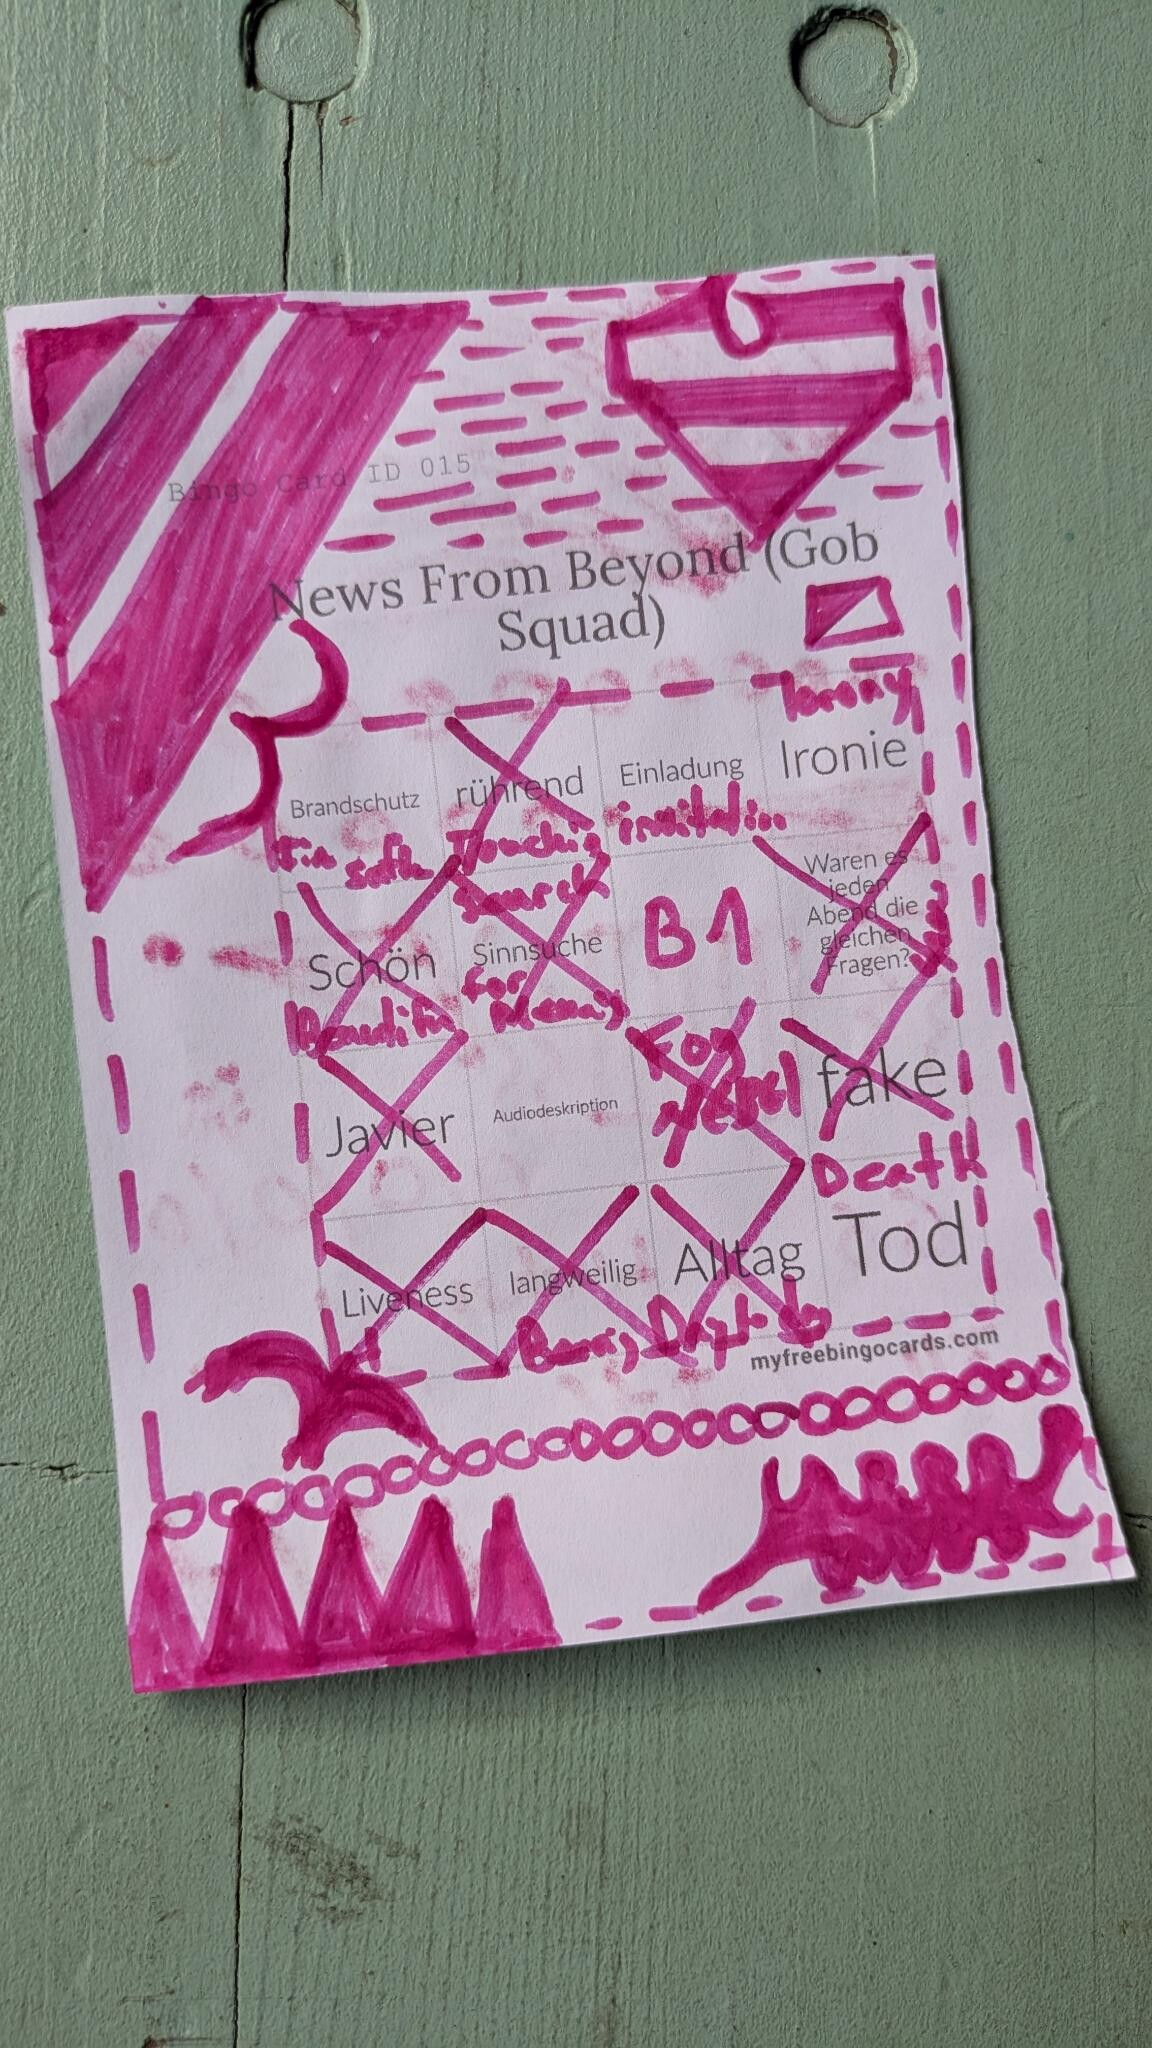 Bingo Card ID 015
News From Beyond (Gob
Squad)
Irony
Brandschutz rührend Einladung Ironie
Touching invitation
search
Schön Sinnsuche B1 Waren es
jeden
Abend die
gleichen
Fragen?
Beautiful for
Javier Audiodeskription For fake
Death
Liveness langweilig Alltag Tod
Boring
myfreebingocards.com